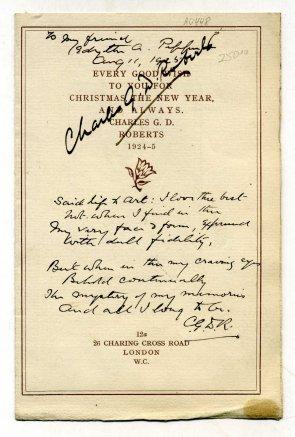 To my friend
A. 
Aug 11, 1925
AG448
2500
EVERY GOOD WISH
TO YOU FOR
CHRISTMAS, THE NEW YEAR,
AND ALWAYS.
CHARLES G. D.
ROBERTS
1924-5
Charles G. D. Roberts
Said Life to Art: I love thee best
Not when I find in thee
My very face & form, expressed
With dull fidelity,
But when in thee my craving eyes
Behold continually
The mystery of my memories
And all I long to be.
C.G.D.R.
12a
26 CHARING CROSS ROAD
LONDON
W.C.